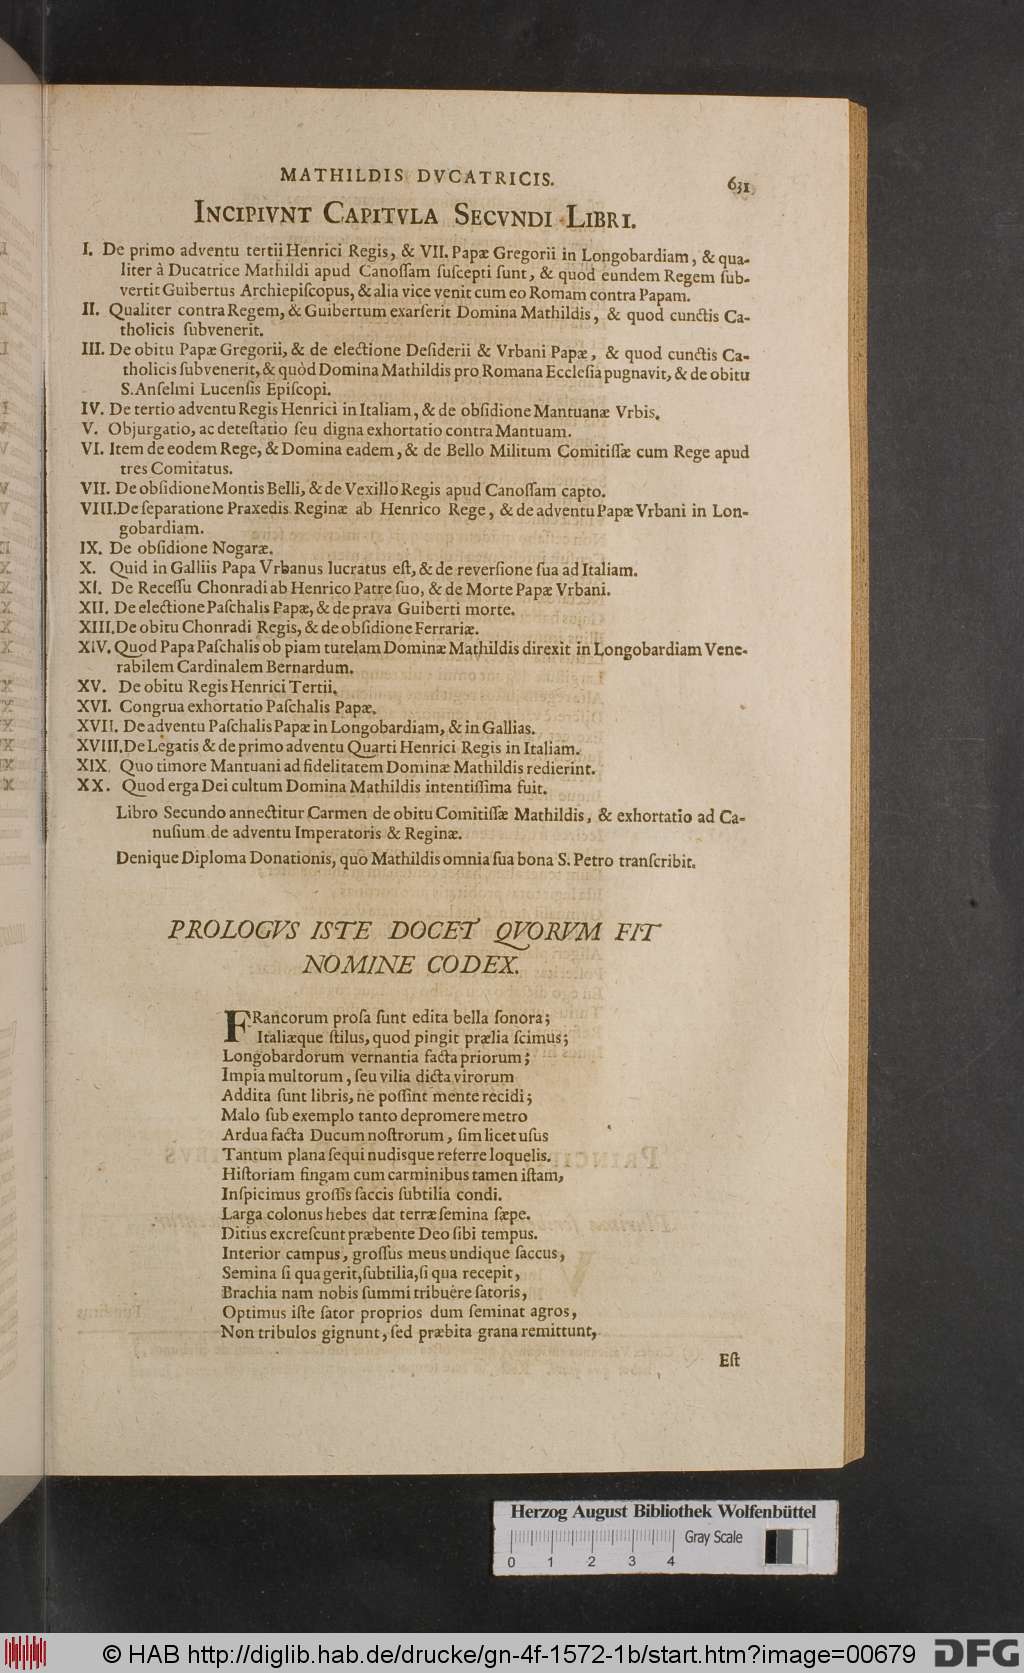 MATHILDIS DVCATRICIS.
631
INCIPIVNT CAPITVLA SECVNDI LIBRI.
I. De primo adventu tertii Henrici Regis, & VII. Papæ Gregorii in Longobardiam, & qua-
liter à Ducatrice Mathildi apud Canoſſam ſuſcepti ſunt, & quod eundem Regem ſub-
vertit Guibertus Archiepiſcopus, & alia vice venit cum eo Romam contra Papam.
II. Qualiter contra Regem, & Guibertum exarſerit Domina Mathildis, & quod cunctis Ca-
tholicis ſubvenerit.
III. De obitu Papæ Gregorii, & de electione Deſiderii & Vrbani Papæ, & quod cunctis Ca-
tholicis ſubvenerit, & quòd Domina Mathildis pro Romana Eccleſia pugnavit, & de obitu
S. Anſelmi Lucenſis Epiſcopi.
IV. De tertio adventu Regis Henrici in Italiam, & de obſidione Mantuanæ Vrbis.
V. Objurgatio, ac deteſtatio ſeu digna exhortatio contra Mantuam.
VI. Item de eodem Rege, & Domina eadem, & de Bello Militum Comitiſſæ cum Rege apud
tres Comitatus.
VII. De obſidione Montis Belli, & de Vexillo Regis apud Canoſſam capto.
VIII. De ſeparatione Praxedis Reginæ ab Henrico Rege, & de adventu Papæ Vrbani in Lon-
gobardiam.
IX. De obſidione Nogaræ.
X. Quid in Galliis Papa Vrbanus lucratus eſt, & de reverſione ſua ad Italiam.
XI. De Receſſu Chonradi ab Henrico Patre ſuo, & de Morte Papæ Vrbani.
XII. De electione Paſchalis Papæ, & de prava Guiberti morte.
XIII. De obitu Chonradi Regis, & de obſidione Ferrariæ.
XIV. Quod Papa Paſchalis ob piam tutelam Dominæ Mathildis direxit in Longobardiam Vene-
rabilem Cardinalem Bernardum.
XV. De obitu Regis Henrici Tertii.
XVI. Congrua exhortatio Paſchalis Papæ.
XVII. De adventu Paſchalis Papæ in Longobardiam, & in Gallias.
XVIII. De Legatis & de primo adventu Quarti Henrici Regis in Italiam.
XIX. Quo timore Mantuani ad fidelitatem Dominæ Mathildis redierint.
XX. Quod erga Dei cultum Domina Mathildis intentiſſima fuit.
Libro Secundo annectitur Carmen de obitu Comitiſſæ Mathildis, & exhortatio ad Ca-
nuſium de adventu Imperatoris & Reginæ.
Denique Diploma Donationis, quo Mathildis omnia ſua bona S. Petro tranſcribit.
PROLOGVS ISTE DOCET QVORVM FIT
NOMINE CODEX.
FRancorum proſa ſunt edita bella ſonora;
Italiæque ſtilus, quod pingit prælia ſcimus;
Longobardorum vernantia facta priorum;
Impia multorum, ſeu vilia dicta virorum
Addita ſunt libris, ne poſſint mente recidi;
Malo ſub exemplo tanto depromere metro
Ardua facta Ducum noſtrorum, ſim licet uſus
Tantum plana ſequi nudisque referre loquelis.
Hiſtoriam fingam cum carminibus tamen iſtam,
Inſpicimus groſſis ſaccis ſubtilia condi.
Larga colonus hebes dat terræ ſemina ſæpe.
Ditius excreſcunt præbente Deo ſibi tempus.
Interior campus, groſſus meus undique ſaccus,
Semina ſi qua gerit, ſubtilia, ſi qua recepit,
Brachia nam nobis ſummi tribuêre ſatoris,
Optimus iſte ſator proprios dum ſeminat agros,
Non tribulos gignunt, ſed præbita grana remittunt,
Eſt
Herzog August Bibliothek Wolfenbüttel
Gray Scale
0 1 2 3 4
© HAB http://diglib.hab.de/drucke/gn-4f-1572-1b/start.htm?image=00679
DFG